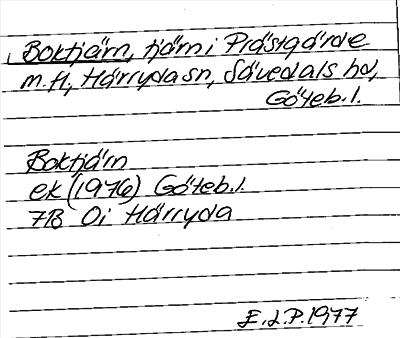 Boktjärn, tjärn i Prästgärde
m.fl., Härryda sn, Sävedals hd,
Göteb. l.
Boktjärn
ek (1976) Göteb. l.
7B 0i Härryda
E.J.P. 1977